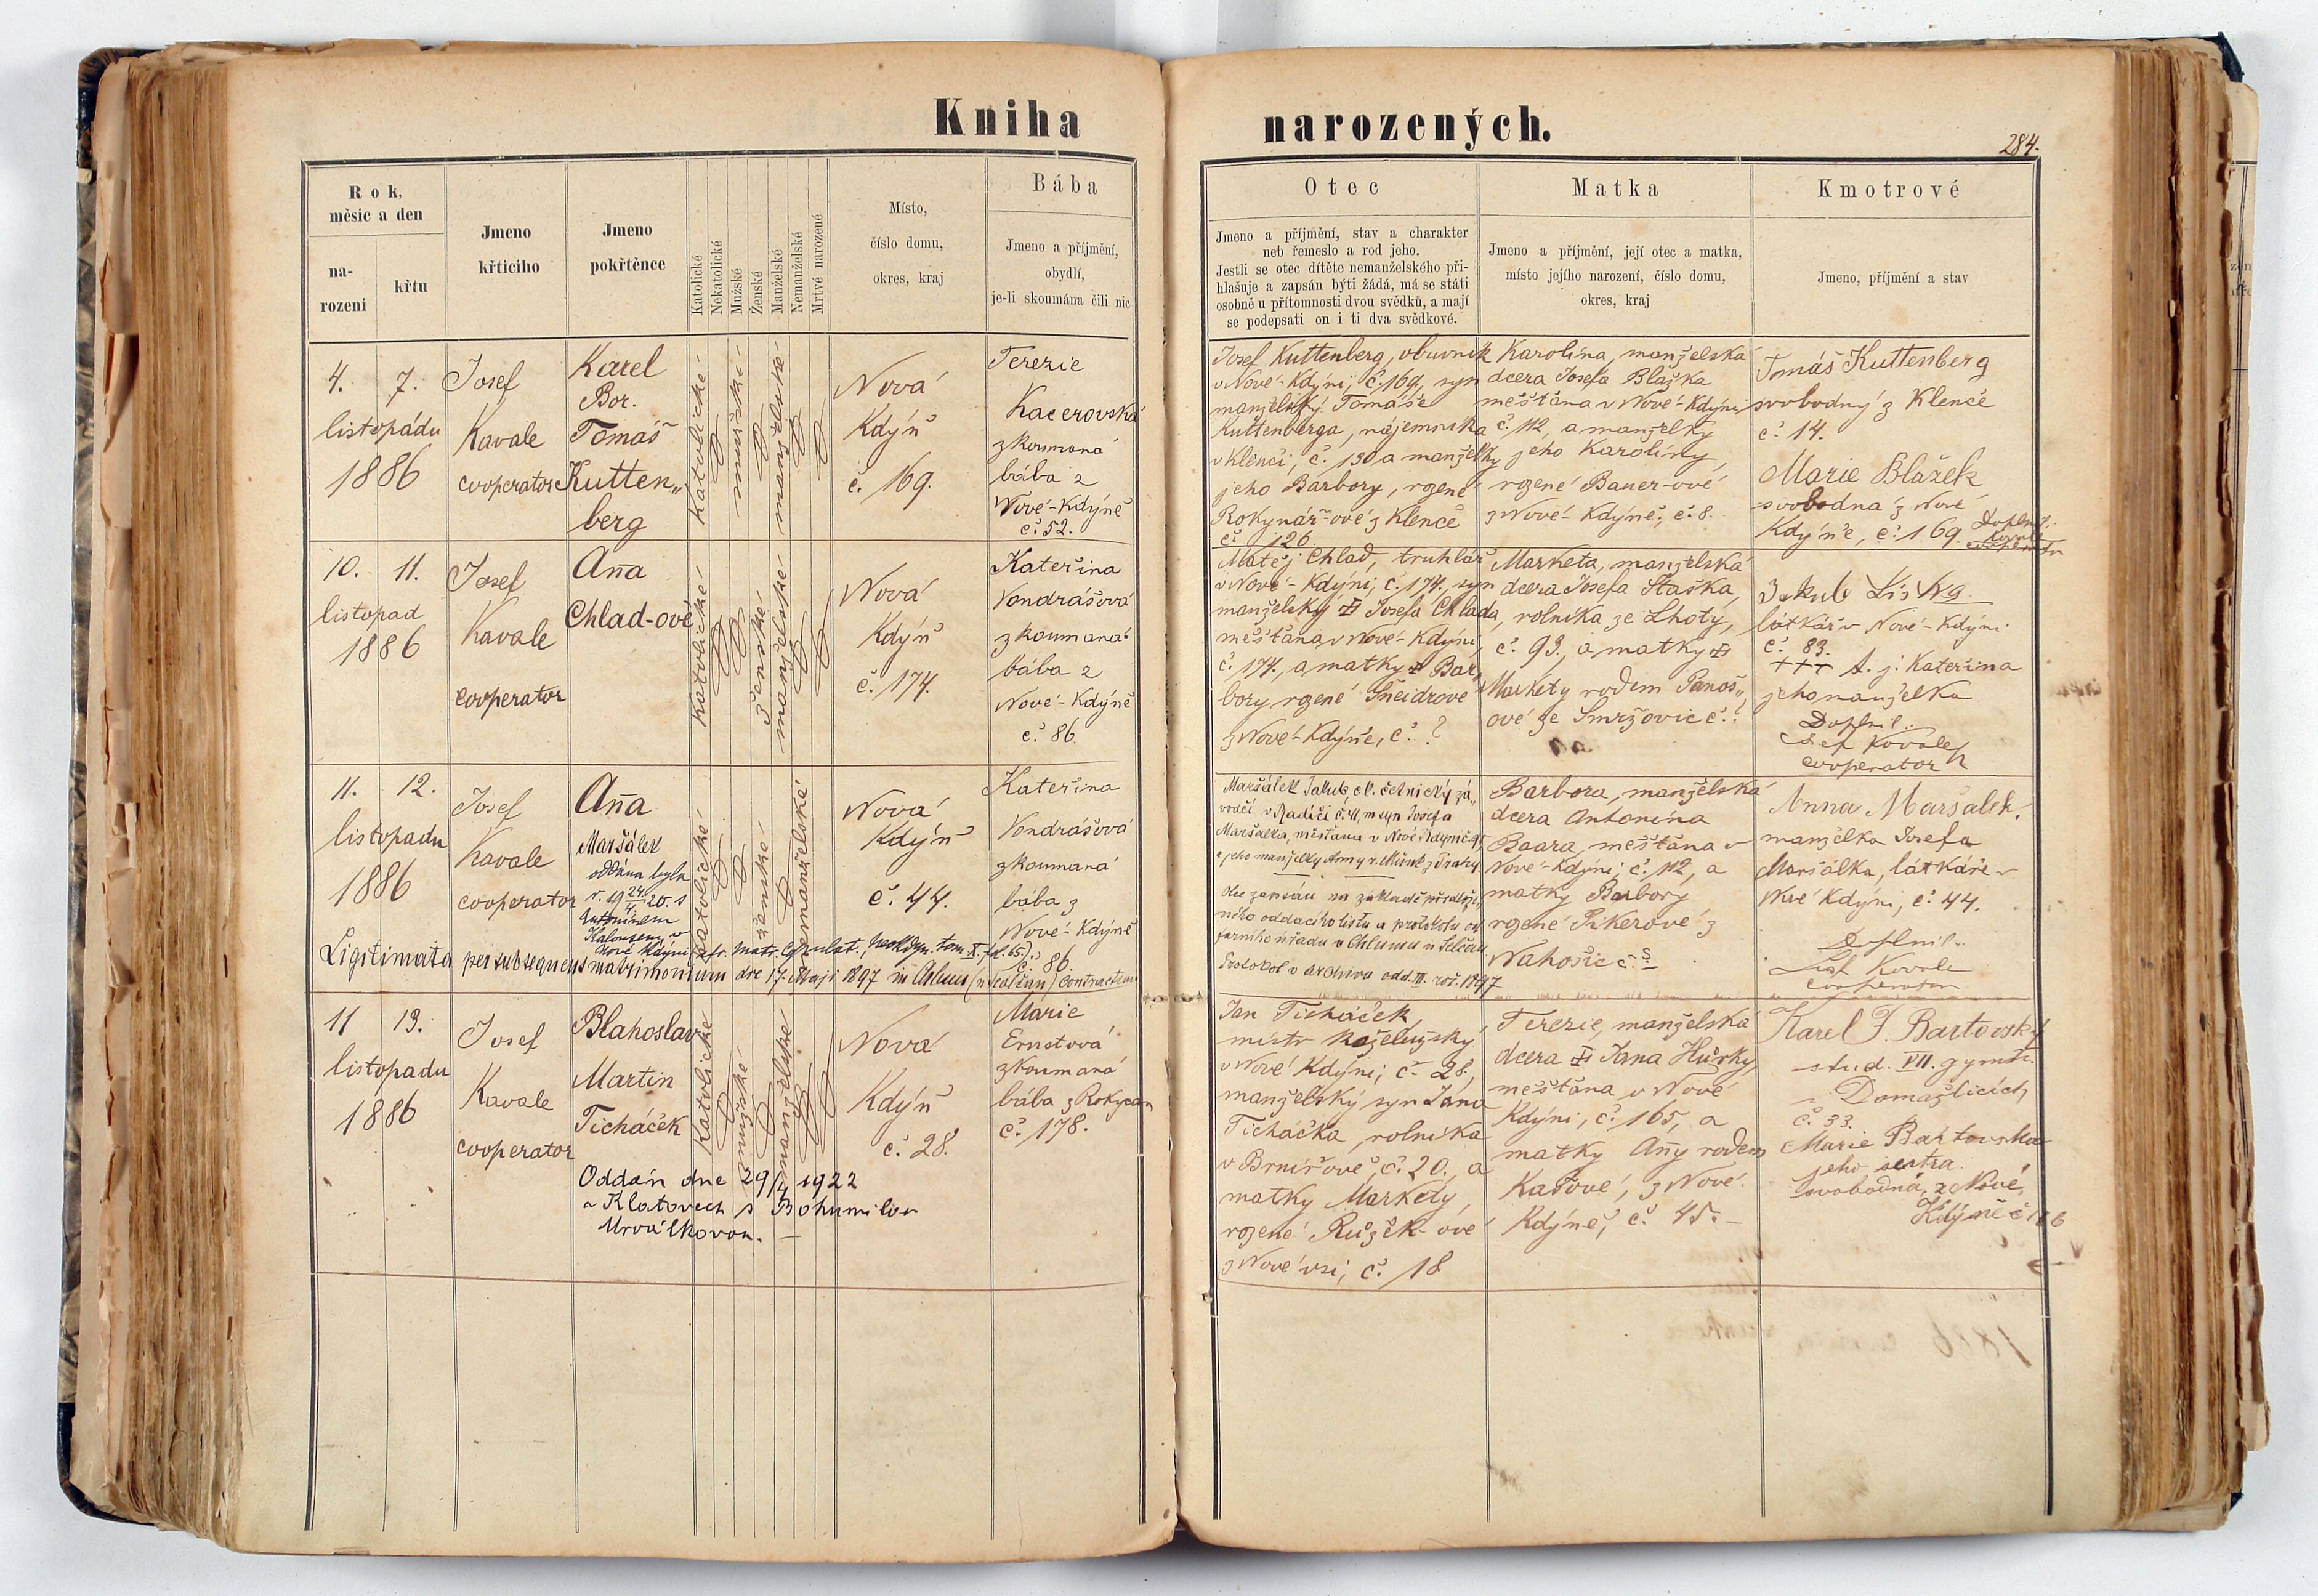 Kniha narozených.
284.
Rok, měsíc a den
na-
rozeni
křtu
Jmeno
křticiho
Jmeno
pokřtěnce
Katolické
Nekatolické
Mužské
Ženské
Manželské
Nemanželské
Mrtvé narozené
Místo,
číslo domu,
okres, kraj
Bába
Jmeno a příjmění,
obydlí,
je-li skoumána čili nic
Otec
Jmeno a příjmění, stav a charakter
neb řemeslo a rod jeho.
Jestli se otec dítěte nemanželského při-
hlašuje a zapsán býti žádá, má se státi
osobně u přítomnosti dvou svědků, a mají
se podepsati on i ti dva svědkové.
Matka
Jmeno a příjmění, její otec a matka,
místo jejího narození, číslo domu,
okres, kraj
Kmotrové
Jmeno, příjmění a stav
4. 7.
listopádu
1886
Josef
Kavale
cooperator
Karel
Bor.
Tomáš
Kutten„
berg
katolické
mužské
manželské
Nová
Kdýň
č. 169.
Terezie
Kacerovská
zkoumaná
bába z
Nové-Kdýně
č. 52.
Josef Kuttenberg, obuvník
v Nové-Kdýni, č. 169, syn
manželský Tomáše
Kuttenberga, nájemníka
v Klenči, č. 130 a manželky
jeho Barbory, rozené
Rokynář-ové z Klenče
č. 126.
Karolina, manželská
dcera Josefa Blažka
měštána v Nové-Kdýni
č. 112, a manželky
jeho Karoliny,
rozené Bauer-ové
z Nové-Kdýně, č. 8.
Tomáš Kuttenberg
svobodný z Klenče
č. 14.
Marie Blažek
svobodná z Nové
Kdýně, č. 169.
Doplnil:
Kavale
cooperator
10. 11.
listopad
1886
Josef
Kavale
cooperator
Aña
Chlad-ové
katolické
ženské
manželské
Nová
Kdýň
č. 174.
Kateřina
Vondrášová
zkoumaná
bába z
Nové-Kdýně
č. 86.
Matěj Chlad, truhlář
v Nové-Kdýni, č. 174, syn
manželský Josefa Chlada,
měštána v Nové-Kdýni,
č. 174., a matky Bar„
bory rozené Šneidrové
z Nové-Kdýně, č. ?
Marketa, manželská
dcera Josefa Staška,
rolníka ze Lhoty,
č. 93., a matky
Markety rodem Panoš„
ové ze Smržovic č. ?
Jakub
látkář v Nové-Kdýni
č. 83.
+++ t. j. Kateřina
jeho manželka
Doplnil:
Josef Kavale
cooperator
11. 12.
listopadu
1886
Josef
Kavale
cooperator
Aña
Maršálek
oddána byla
r. 19 24/4 20. s
Antonínem
Kalouseny v
Nové Kdyni
katolické
ženské
nemanželské
Nová
Kdýň
č. 44.
Kateřina
Vondrášová
zkoumaná
bába z
Nové-Kdýně
č. 86
Ligitimata per subsequens matrimonium die 17 Maji 1897 in Chlum contractum
Maršálek Jakub, c. k. četnický zá„
vodčí v Radíči č. 41, m syn Josefa
Maršálka, měšťana v Nové Kdyni č. 95
a jeho manželky Anny r. z Prahy.
Otec zapsán na základě předlože„
ného oddacího listu a protokolu od
farního úřadu v Chlumu u Selčan
Protokol v archivu odd. III. roč. 1897
Barbora, manželská
dcera Antonína
Baara, měštána v
Nové-Kdýni, č. 112, a
matky Barbory
rozené Sikerové z
Nahošic č.
Anna Maršalek.
manželka Josefa
Maršálka, látkáře v
Nové Kdýni, č. 44.
Doplnil:
Josef Kavale
cooperator
11 13.
listopadu
1886
Josef
Kavale
cooperator
Blahoslav
Martin
Ticháček
Katolické
mužské
manželské
Oddán dne 29/4 1922
v Klatovech s Bohumilou
Mrválkovou. —
Nová
Kdýň
č. 28.
Marie
Ernstová
zkoumaná
bába z Rokycan
č. 178.
Jan Ticháček,
mistr koželužský
v Nové Kdýni, č. 28,
manželský syn Jána
Ticháčka, rolníka
v Brnířově, č. 20, a
matky Markety,
rozené Růžek-ové
z Nové vsi, č. 18
Terezie, manželská
dcera Jana Hušky,
měštána v Nové
Kdýni, č. 165, a
matky Añy rodem
Kaťové, z Nové
Kdýně, č. 45. —
Karel J. Bartovský
stud. VII. gymn.
v Domažlicích,
č. 33.
Marie Bartovská
jeho sestra
svobodná, z Nové
Kdýně č 116